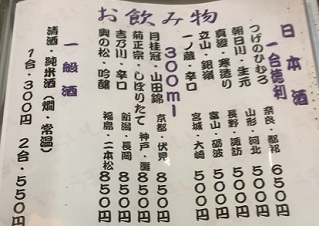 お飲み物
日本酒
一合徳利
つげのひむろ 奈良・都祁 650円
朝日川・生元 山形・河北 500円
真澄・寒造り 長野・諏訪 500円
立山・銀嶺 富山・砺波 500円
一ノ蔵・辛口 宮城・大崎 500円
300ml
月桂冠・山田錦 京都・伏見 850円
菊正宗・しぼりたて 神戸・灘 850円
吉乃川・辛口 新潟・長岡 850円
奥の松・吟醸 福島・二本松 850円
一般酒
清酒・純米酒(燗・常温)
1合・300円 2合・550円